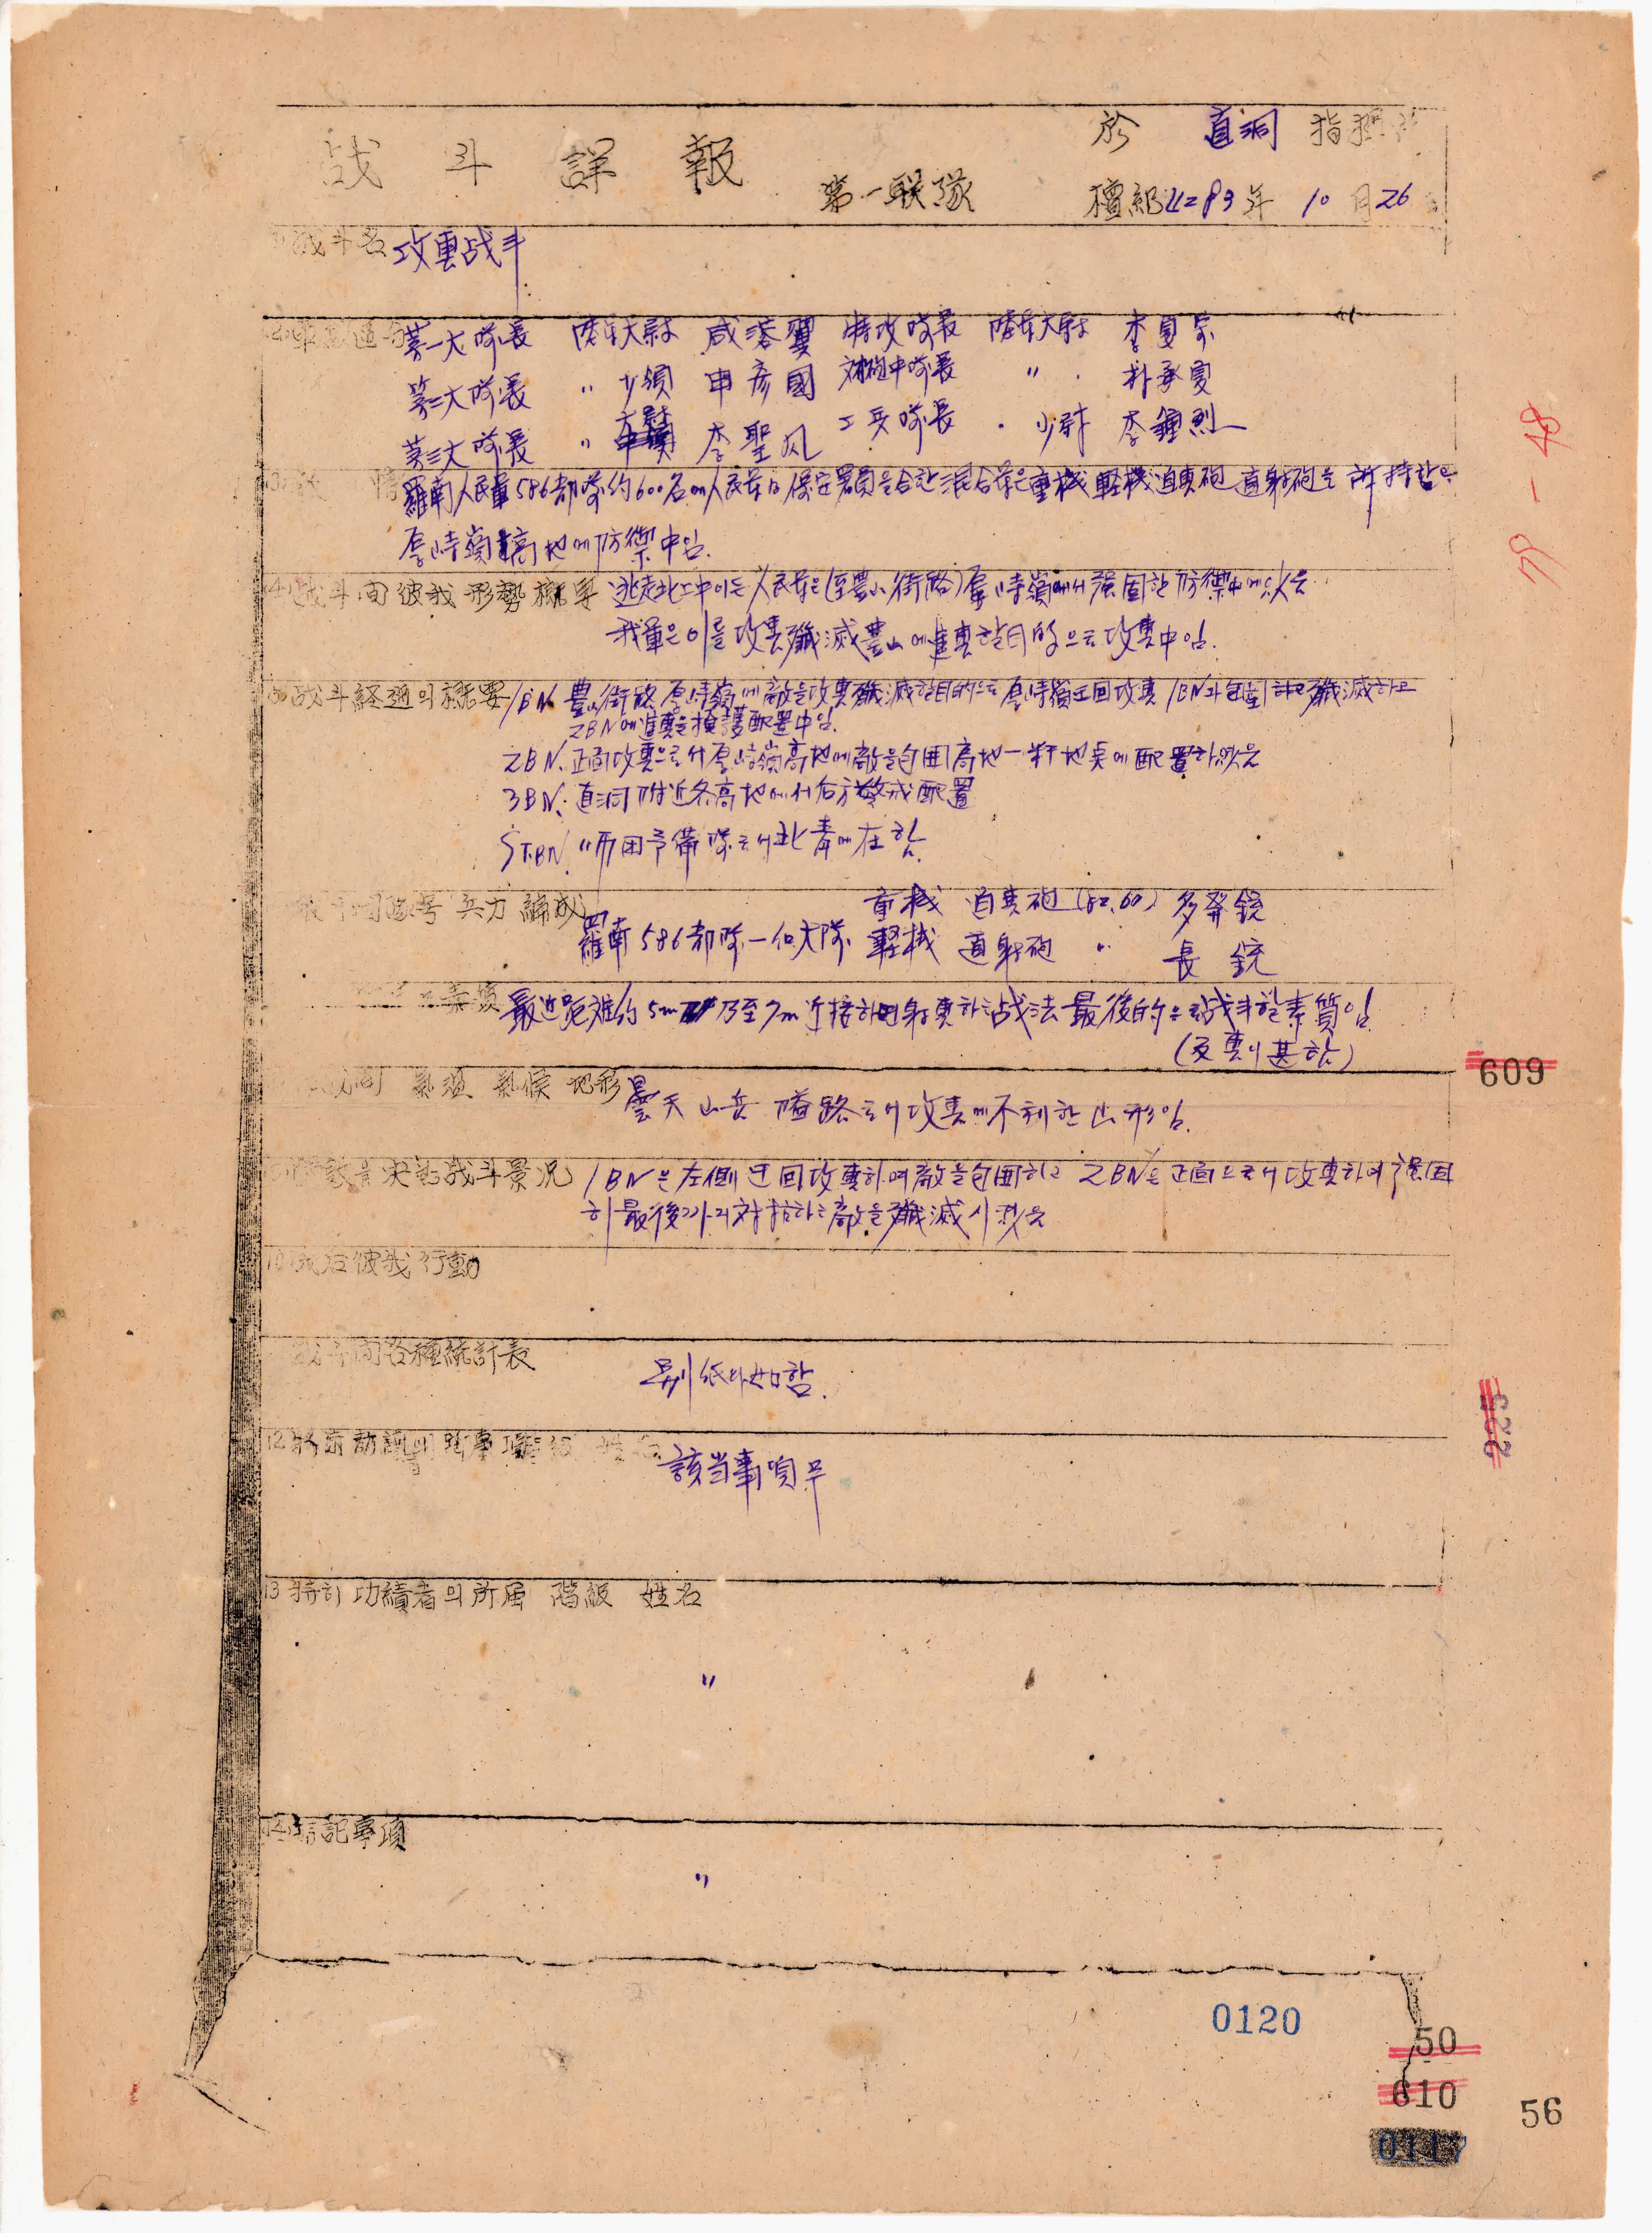 於 直洞 指揮
战斗詳報 第一联隊 檀紀4283年 10月26
战斗名 攻擊战斗
第一大隊長 陸軍大尉 咸 翼 特攻隊長 陸軍大尉 李夏
第二大隊長 〃 少領 申彦國 対戦砲中隊長 〃 朴承夏
第三大隊長 〃 大尉 李聖凡 工兵隊長 〃 少尉 李鍾烈
羅南人民軍586部隊約600名 人民軍과 保安署員을 合한 混合軍은 重機 軽機 迫擊砲 直射砲을 所持하고
厚峙嶺高地에 防禦中임.
(4)战斗間彼我形勢概要 逃走北上中이든 人民軍은 (至豊山街路) 厚峙嶺에서 强固한 防禦中에 있슴
我軍은 이를 攻擊殲滅 豊山에 進擊할 目的으로 攻擊中임.
战斗経過의 概要 1BN. 豊山街路 厚峙嶺에 敵을 攻擊殲滅할 目的으로 厚峙嶺 迂回攻擊 1BN과 包圍하고 殲滅하고
2BN에 進擊을 掩護 配置中임.
2BN. 正面攻擊으로서 厚峙嶺高地에 敵을 包囲 高地一粁 地奌에 配置하였슴
3BN. 直洞附近 各高地에서 后方警戒配置
S.T.BN. 师団予備隊로서 北靑에 在함.
兵力 編成 重機 迫擊砲 (82.60) 多発銃
羅南586部隊一個大隊 軽機 直射砲 〃 長銃
素質 最近距離 約5m 乃至7m 近接하여 射擊하는 战法 最後的으로 战斗할 素質임
(反擊이 甚함)
氣温 氣候 地形 曇天 山岳 隘路로서 攻擊에 不利한 山形임.
战斗景况 1BN은 左側 迂回攻擊하여 敵을 包囲하고 2BN은 正面으로서 攻擊하여 强固
히 最後까지 対抗하는 敵을 殲滅시켰슴
10 战后彼我行動
战斗間各種統計表 別紙와 如함.
12 該当事項무
13 特히 功績者의 所属 階級 姓名
〃
14 記事項
〃
609
225
0120
50
610
56
0117